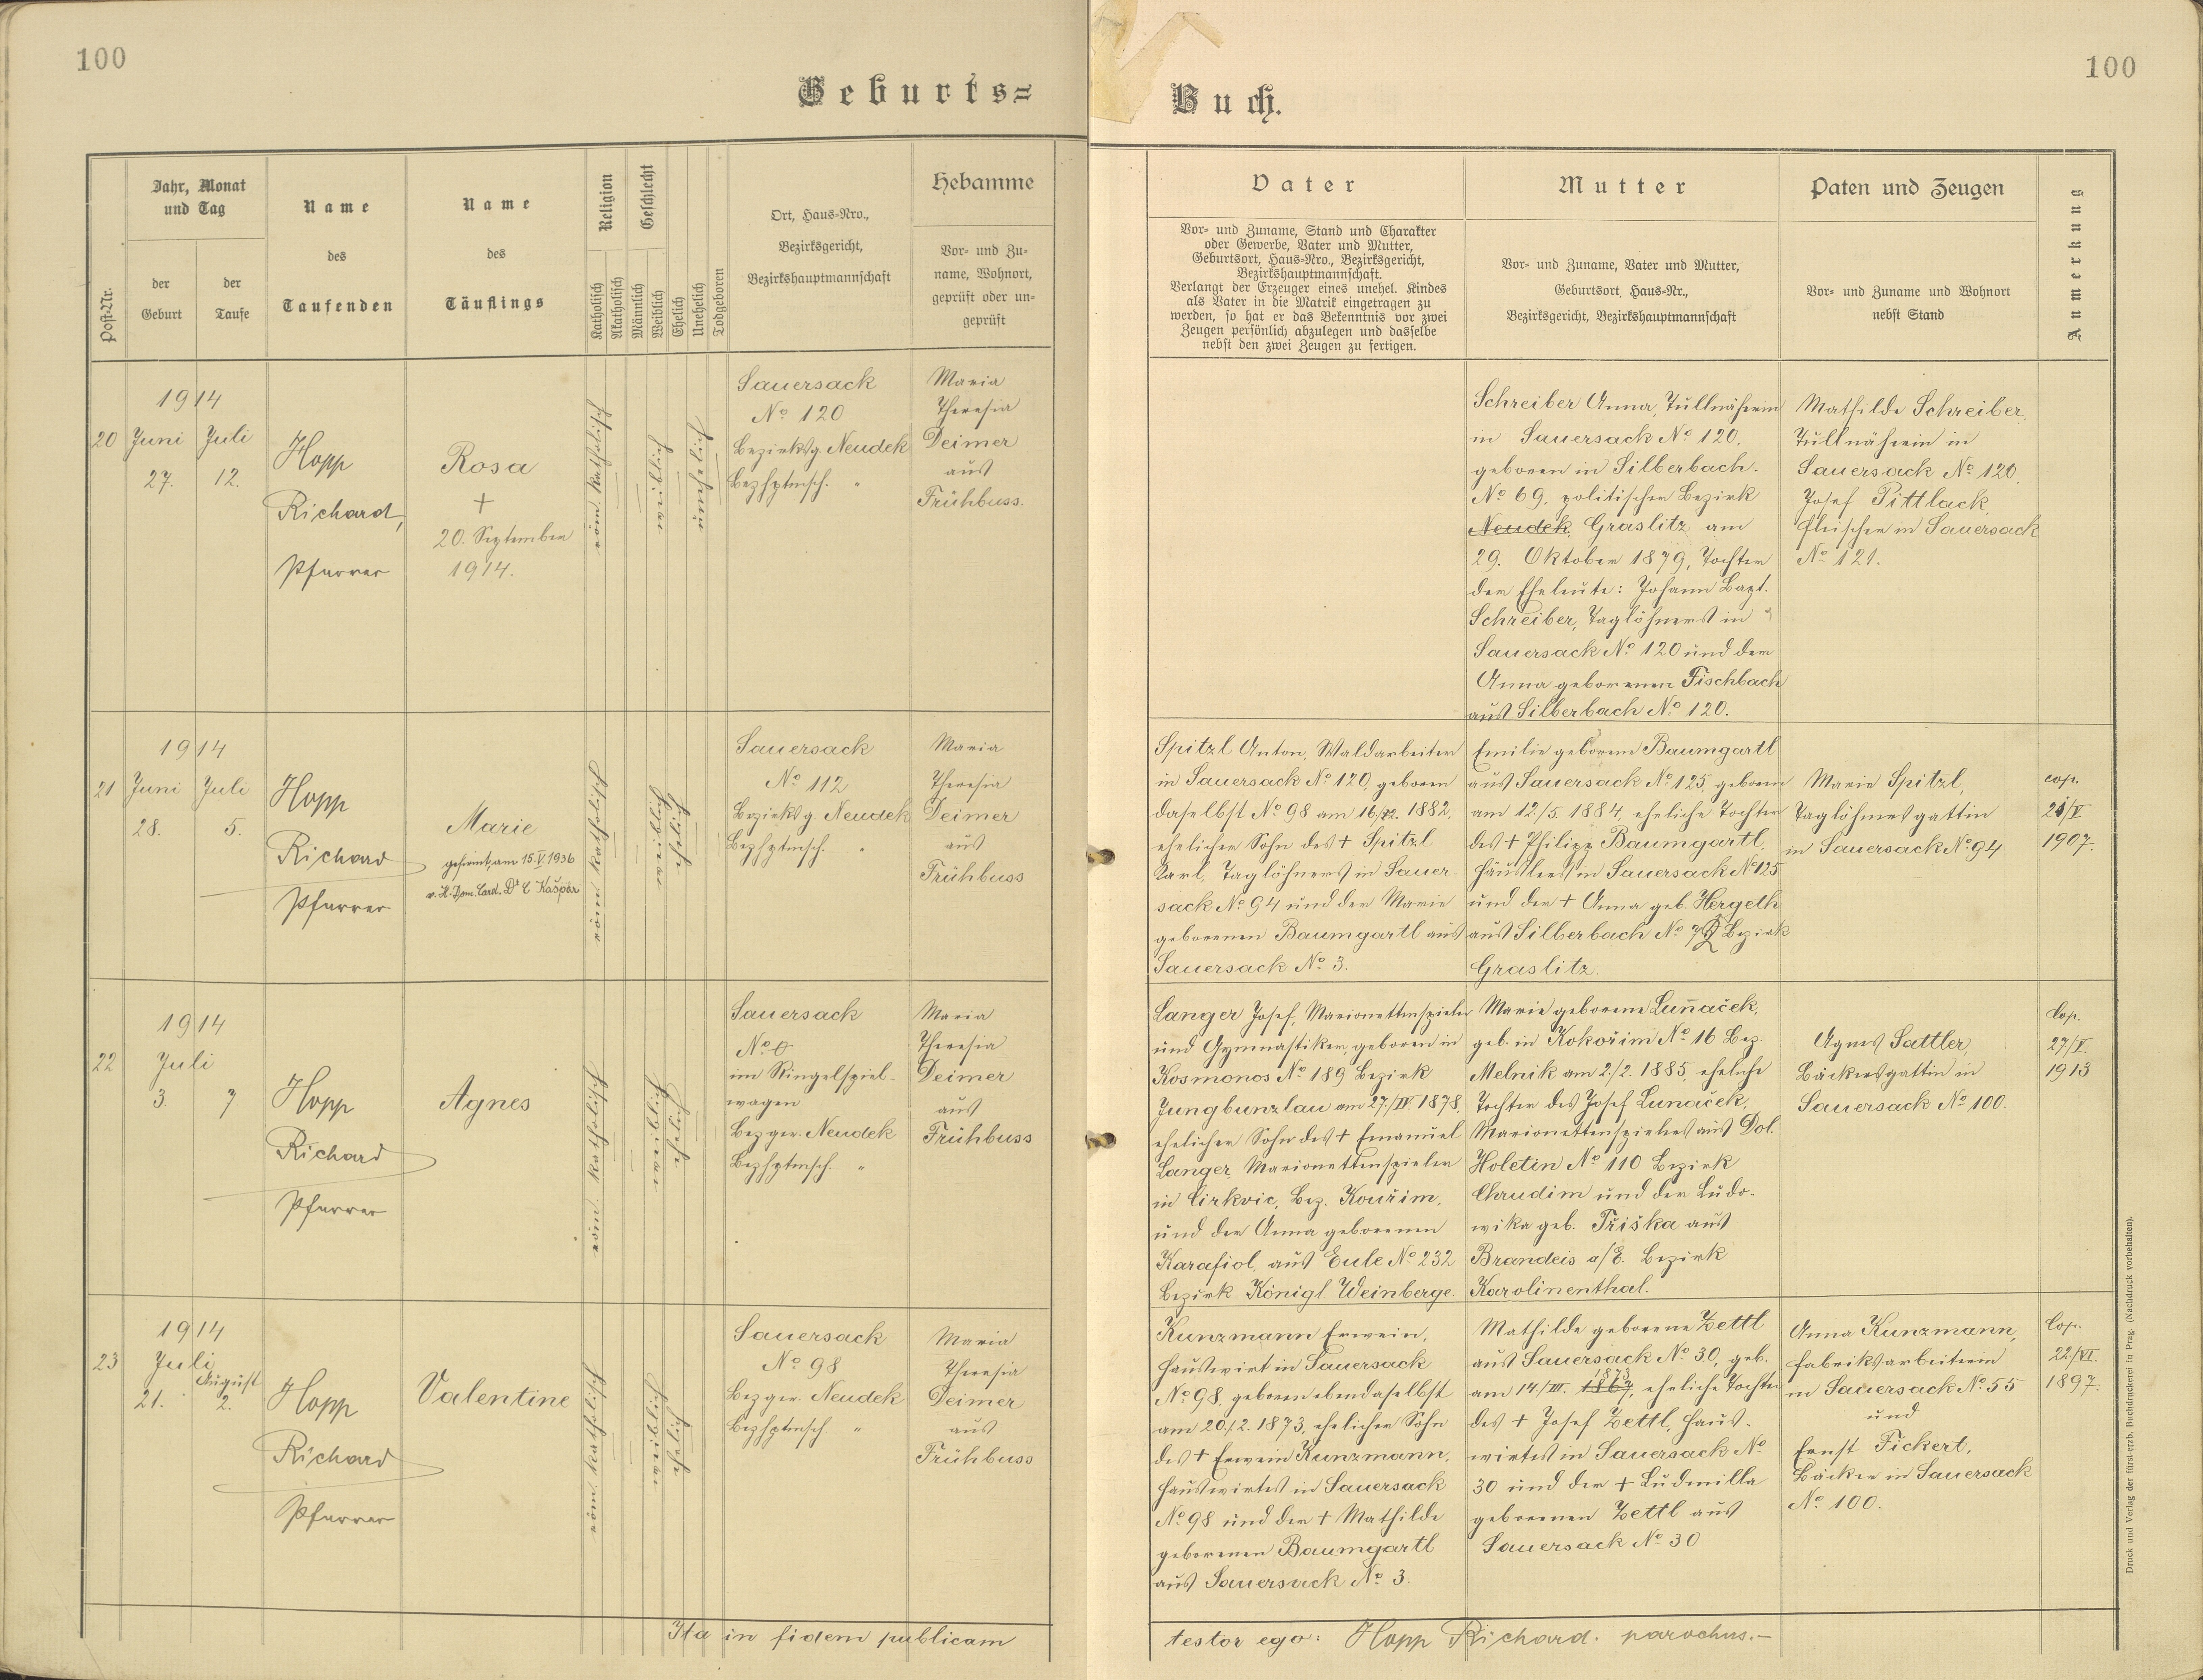 100
Geburts=
Post-Nr.
Jahr, Monat
und Tag
der
Geburt
der
Taufe
Name
des
Taufenden
Name
des
Täuflings
Religion
Katholisch
Akatholisch
Geschlecht
Männlich
Weiblich
Ehelich
Unehelich
Todgeboren
Ort, Haus=Nro.,
Bezirksgericht,
Bezirkshauptmannschaft
Hebamme
Vor= und Zu=
name, Wohnort,
geprüft oder un=
geprüft
1914
20 Juni Juli
27. 12.
Hopp
Richard,
Pfarrer
Rosa
+
20. September
1914.
röm. katholisch
weiblich
unehelich
Sauersack
No 120
Bezirksg. Neudek
Bezhptmsch. "
Maria
Theresia
Deimer
aus
Frühbuss.
1914
21 Juni Juli
28. 5.
Hopp
Richard
Pfarrer
Marie
gefirmt, am 15.V.1936
v. H. Dom. Card. Dr C Kašpar
röm. katholisch
weiblich
ehelich
Sauersack
No 112
Bezirksg. Neudek
Bezhptmsch. "
Maria
Theresia
Deimer
aus
Frühbuss
1914
22 Juli
3. 7
Hopp
Richard
Pfarrer
Agnes
röm. katholisch
weiblich
ehelich
Sauersack
No 0
im Ringelspiel-
wagen
Bezger. Neudek
Bezhptmsch. "
Maria
Theresia
Deimer
aus
Frühbuss
1914
23 Juli August
21. 2.
Hopp
Richard
Pfarrer
Valentine
röm. katholisch
weiblich
ehelich
Sauersack
No 98
Bezger. Neudek
Bezhptmsch. "
Maria
Theresia
Deimer
aus
Frühbuss
Ita in fidem publicam
100
Buch.
Vater
Vor= und Zuname, Stand und Charakter
oder Gewerbe, Vater und Mutter,
Geburtsort, Haus=Nro., Bezirksgericht,
Bezirkshauptmannschaft.
Verlangt der Erzeuger eines unehel. Kindes
als Vater in die Matrik eingetragen zu
werden, so hat er das Bekenntnis vor zwei
Zeugen persönlich abzulegen und dasselbe
nebst den zwei Zeugen zu fertigen.
Mutter
Vor= und Zuname, Vater und Mutter,
Geburtsort, Haus=Nr.,
Bezirksgericht, Bezirkshauptmannschaft
Paten und Zeugen
Vor= und Zuname und Wohnort
nebst Stand
Anmerkung
Schreiber Anna, Tüllnäherin
in Sauersack No 120,
geboren in Silberbach.
No 69. politischer Bezirk
Neudek, Graslitz am
29. Oktober 1879, Tochter
der Eheleute: Johann Bapt.
Schreiber, Taglöhners in
Sauersack No 120 und der
Anna geborenen Fischbach
aus Silberbach No 120.
Mathilde Schreiber,
Tüllnäherin in
Sauersack No 120,
Josef Pittlack,
Fleischer in Sauersack
No 121.
Spitzl Anton, Waldarbeiter
in Sauersack No 120, geboren
daselbst No 98 am 1882,
ehelicher Sohn des + Spitzl
Karl, Taglöhners in Sauer-
sack No 94 und der Marie
geborenen Baumgartl aus
Sauersack No 3.
Emilie geborene Baumgartl
aus Sauersack No 125, geboren
am 12/5. 1884, eheliche Tochter
des + Philipp Baumgartl,
Häuslers in Sauersack No 125
und der + Anna geb. Hergeth
aus Silberbach No Bezirk
Graslitz.
Marie Spitzl,
Taglöhnersgattin
in Sauersack No 94
cop.
/V
1907.
Langer Josef, Marionettenspieler
und Gymnastiker, geboren in
Kosmonos No 189 Bezirk
Jungbunzlau am 27./IV. 1878,
ehelicher Sohn des + Emanuel
Langer, Marionettenspieler
in Cirkvic, Bez. Kouřim,
und der Anna geborenen
Karafiol, aus Eule No 232
Bezirk Königl. Weinberge.
Marie geborene Luňaček,
geb. in Kokořim No 16 Bez.
Melnik am 2./2. 1885, eheliche
Tochter des Josef Lunaček,
Marionettenspielers aus Dol.
Holetin No 110 Bezirk
Chrudim und der Ludo-
wika geb. Třiška aus
Brandeis a/E. Bezirk
Karolinenthal.
Agnes Sattler,
Bäckersgattin in
Sauersack No 100.
Cop.
27/V.
1913
Kunzmann Erwein,
Hauswirt in Sauersack
No 98, geboren ebendaselbst
am 20./2. 1873, ehelicher Sohn
des + Erwein Kunzmann,
Hauswirtes in Sauersack
No 98 und der + Mathilde
geborenen Baumgartl
aus Sauersack No 3.
Mathilde geborene Zettl
aus Sauersack No 30, geb.
am 14./III. 1873, eheliche Tochter
des + Josef Zettl, Haus-
wirtes in Sauersack No
30 und der + Ludmilla
geborenen Zettl aus
Sauersack No 30
Anna Kunzmann,
Fabriksarbeiterin
in Sauersack No 55
und
Ernst Fickert,
Bäcker in Sauersack
No 100.
Cop.
22/VI.
1897.
testor ego: Hopp Richard. parochus.-
Druck und Verlag der fürst-erzb. Buchdruckerei in Prag. (Nachdruck vorbehalten).